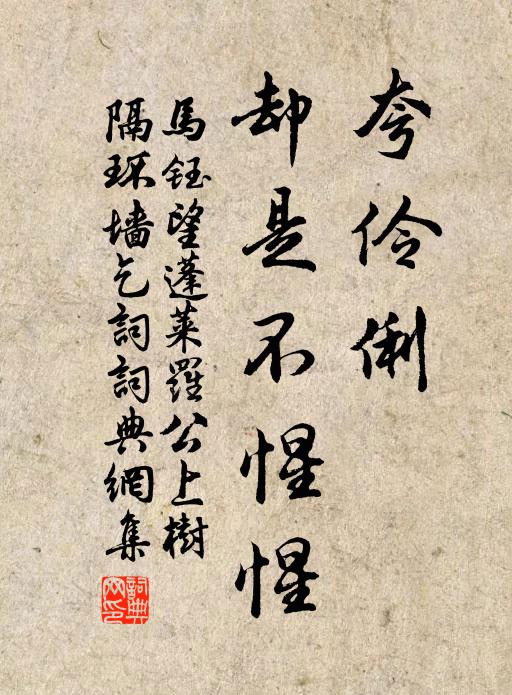 夸伶俐
却是不惺惺
馬鈺望蓬萊羅公上樹
隔环墙乞詞詞典網集
詞典网印